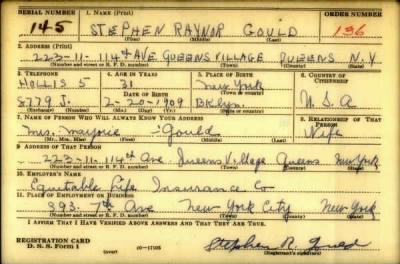 SERIAL NUMBER 1. NAME (Print) ORDER NUMBER
145 STEPHEN RAYNOR GOULD 136
(First) (Middle) (Last)
2. ADDRESS (Print)
223-11-114th AVE QUEENS VILLAGE QUEENS N.Y
(Number and street or R. F. D. number) (Town) (County) (State)
3. TELEPHONE 4. AGE IN YEARS 5. PLACE OF BIRTH 6. COUNTRY OF CITIZENSHIP
HOLLIS 5 31 New York
DATE OF BIRTH (Town or county)
8779 J. 2-20-1909 Bklyn. U.S.A
(Exchange) (Number) (Mo.) (Day) (Yr.) (State or country)
7. NAME OF PERSON WHO WILL ALWAYS KNOW YOUR ADDRESS 8. RELATIONSHIP OF THAT PERSON
Mrs. Marjorie Gould Wife
(Mr., Mrs., Miss) (First) (Middle) (Last)
9. ADDRESS OF THAT PERSON
223-11-114th Ave. Queens Village Queens New York
(Number and street or R. F. D. number) (Town) (County) (State)
10. EMPLOYER'S NAME
Equitable Life Insurance Co
11. PLACE OF EMPLOYMENT OR BUSINESS
393. 7th Ave New York City New York
(Number and street or R. F. D. number) (Town) (County) (State)
I AFFIRM THAT I HAVE VERIFIED ABOVE ANSWERS AND THAT THEY ARE TRUE.
REGISTRATION CARD
D. S. S. Form 1 (over) 16-17105 Stephen R. Gould
(Registrant's signature)